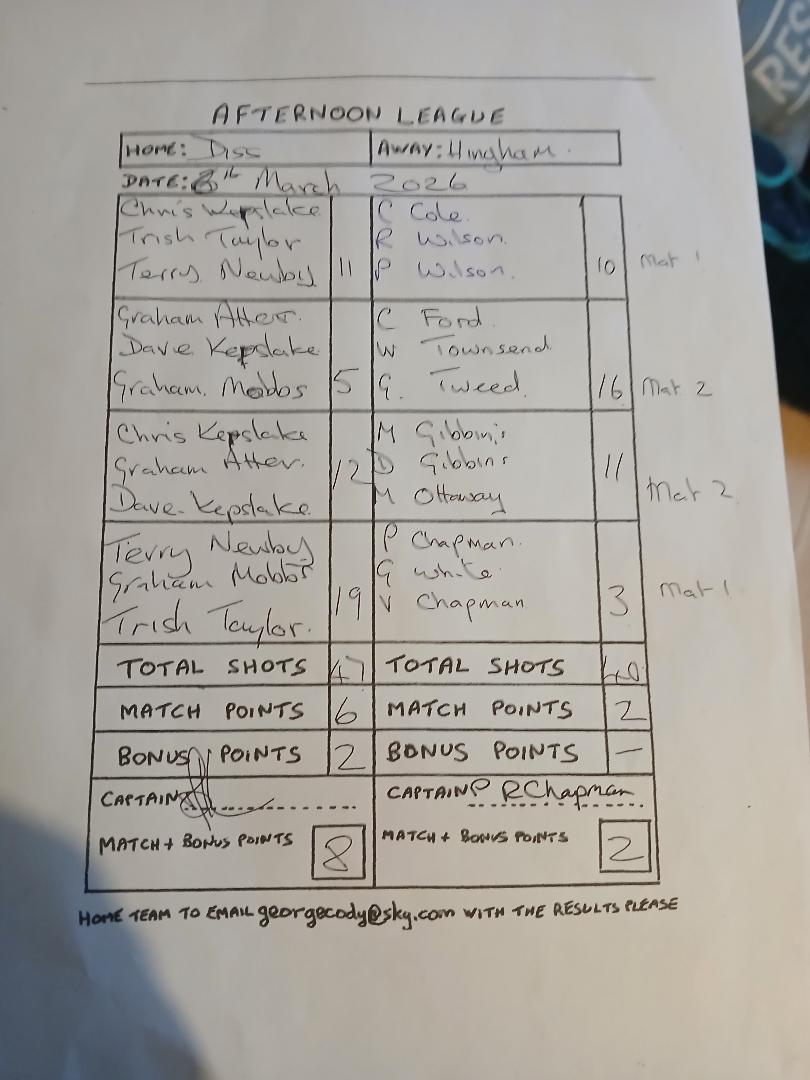 RES
AFTERNOON LEAGUE
HOME: Diss AWAY: Hingham.
DATE: 8th March 2026
Chris Kepslake C Cole.
Trish Taylor R Wilson.
Terry Newby 11 P Wilson. 10 Mat 1
Graham Atter. C Ford.
Dave Kepslake W Townsend
Graham. Mobbs 5 G. Tweed. 16 Mat 2
Chris Kepslake M Gibbins
Graham Atter. 12 D Gibbins 11
Dave. Kepslake M Ottaway Mat 2
Terry Newby P Chapman.
Graham Mobbs G White
Trish Taylor. 19 V Chapman 3 Mat 1
TOTAL SHOTS 47 TOTAL SHOTS 40
MATCH POINTS 6 MATCH POINTS 2
BONUS POINTS 2 BONUS POINTS —
CAPTAIN CAPTAIN P R Chapman
MATCH + BONUS POINTS 8 MATCH + BONUS POINTS 2
HOME TEAM TO EMAIL georgecody@sky.com WITH THE RESULTS PLEASE